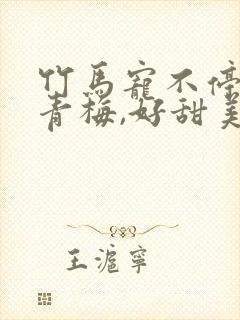 竹马寵不停
青梅,好甜美
王滬寧